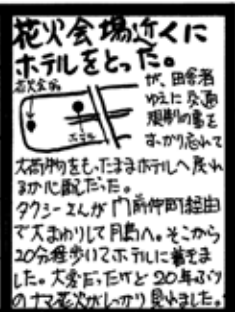 花火会場近くに
ホテルをとった。
花火会場
ホテル
が、田舎者
ゆえに交通
規制の事を
すっかり忘れて
大荷物をもったままホテルへ戻れ
るか心配だった。
タクシーさんが門前仲町経由
で大まわりして月島へ。そこから
20分程歩いてホテルに着きま
した。大変だったけど20年ぶり
のナマ花火がしっかり見れました。